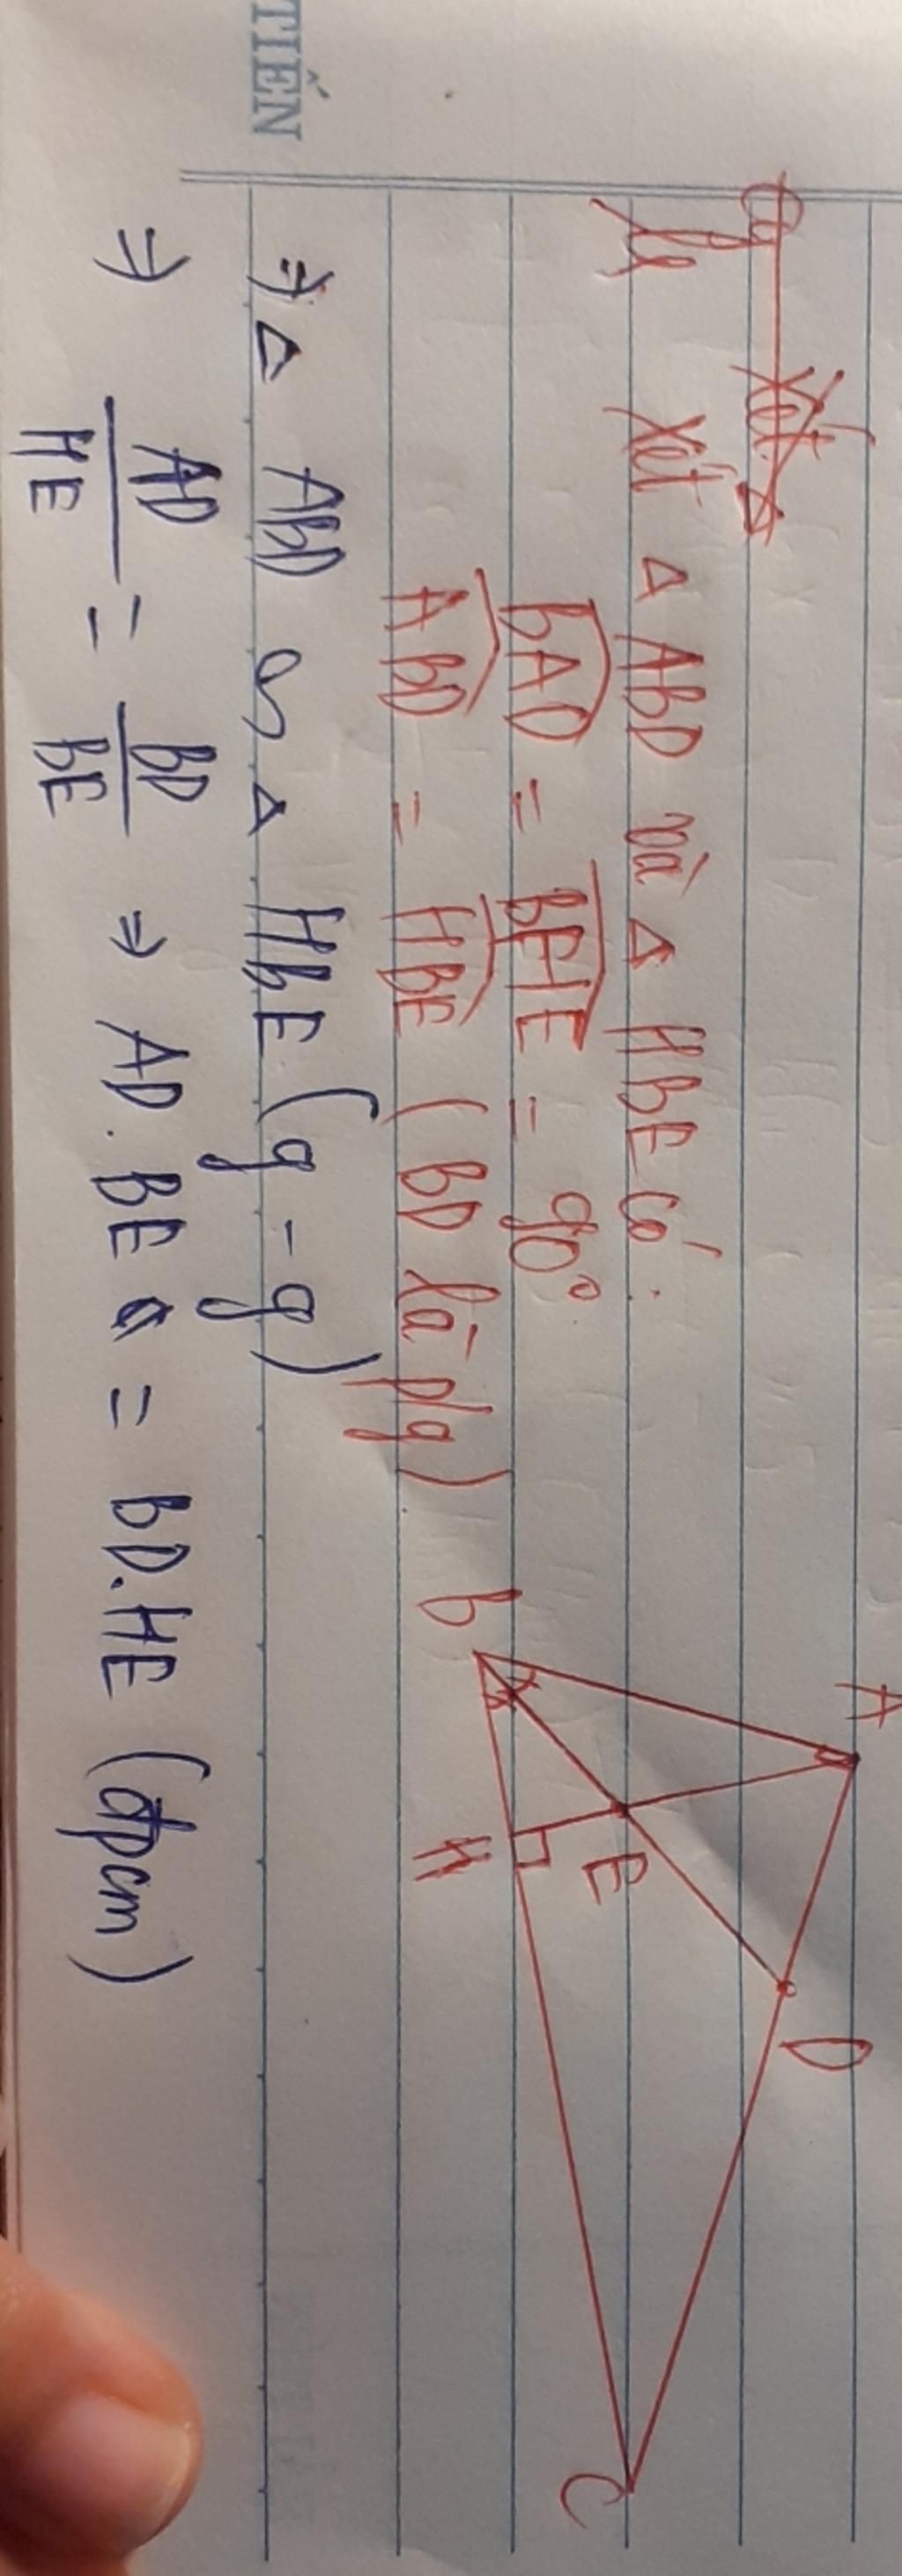 TIẾN
Xét
Xét Δ ABD và Δ HBE có:
BAD = BHE = 90°
ABD = HBE (BD là p/g)
⇒ Δ ABD ∽ Δ HBE (g - g)
⇒ AD/HE = BD/BE ⇒ AD.BE = BD.HE (đpcm)
A
B
H
E
D
C